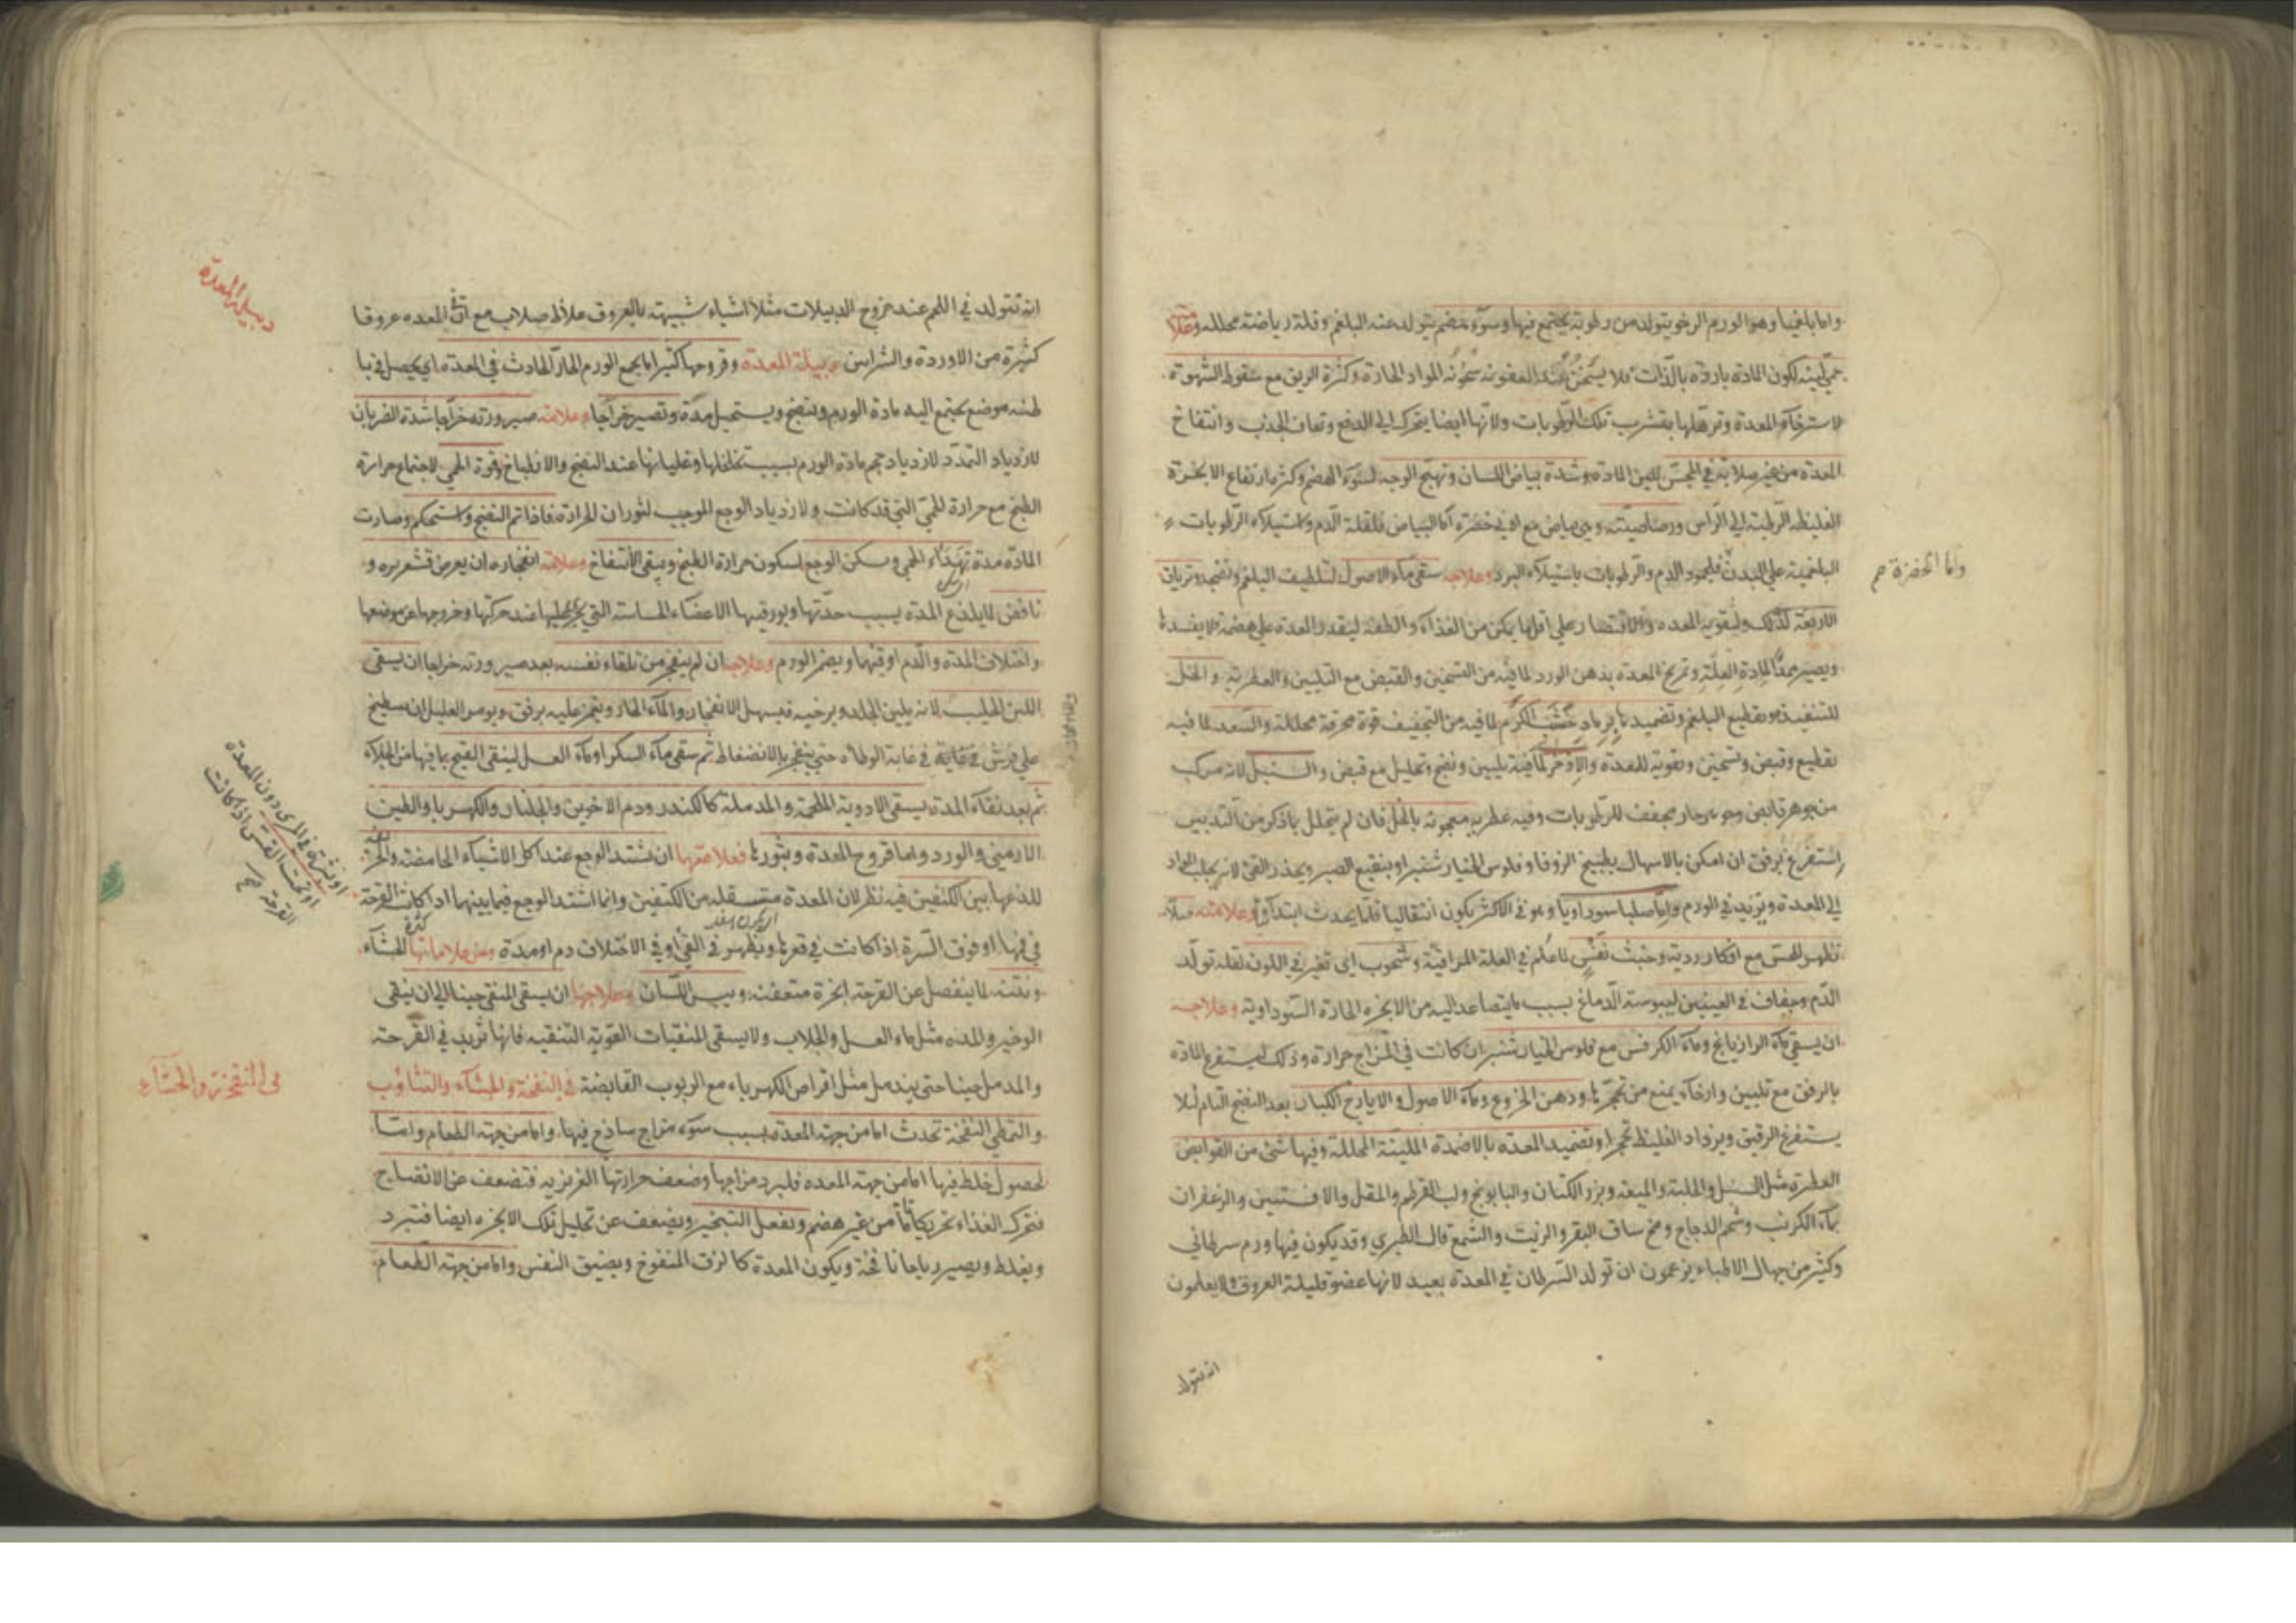 واما بلغميا وهو الورم الرخو يتولد من رطوبة يجتمع فيها وسوء هضم يتولد عنه البلغم وقلة رياضة محللة وعلا
حمى لينة لكون المادة باردة بالذات فلا يسخن عند العفونة سخونة المواد الحارة وكثرة الريق مع سقوط الشهوة
لاسترخاء المعدة وترهلها بتشرب تلك الرطوبات ولانها ايضا يتحرك الى الدفع وتعاف الجذب وانتفاخ
المعدة من غير صلابة في المجس للين المادة وشدة بياض اللسان وتهيج الوجه لسوء الهضم وكثرة ارتفاع الابخرة
الغليظة الرطبة الى الراس ورصاصيته وهي بياض مع ادنى خضرة اما البياض فلقلة الدم واستيلاء الرطوبات
البلغمية على البدن فلجمود الدم والرطوبات باستيلاء البرد وعلاجه سقى ماء الاصول لتلطيف البلغم وتنضيجه وترياق
واما الخضرة صح
الاربعة لذلك ولتقوية المعدة والاقتصار على اقل ما يمكن من الغذاء والطفه ليقدر المعدة على هضمه ولا يفسد
ويصير ممدا لمادة العلة وتمريخ المعدة بدهن الورد لما فيه من التسخين والقبض مع التليين والعطرية والخل
للتنفيذ وتقطيع البلغم وتضميدها برماد خشب الكرم لما فيه من التجفيف قوة محرقة محللة والسعد لما فيه
تقطيع وقبض وتسخين وتقوية للمعدة والاذخر لما فيه تليين ونضج وتحليل مع قبض والسنبل لانه مركب
من جوهر قابض وجوهر حار مجفف للرطوبات وفيه عطرية معجونة بالخل فان لم يتحلل بما ذكر من التدبير
استفرغ برفق ان امكن بالاسهال بطبيخ الزوفا وفلوس الخيار شنبر او بنقيع الصبر ويحذر القئ لانه يجلب المواد
الى المعدة ويزيد في الورم واما صلبا سوداويا وهو في الاكثر يكون انتقاليا قلما يحدث ابتداء وعلامته صلابة
تظهر للحس مع افكار ردية وخبث نفس لما علم في العلة المراقية وشحوب اى تغير في اللون لقلة تولد
الدم وجفاف في العينين ليبوسة الدماغ بسبب ما يتصاعد اليه من الابخرة الحارة السوداوية وعلاجه
ان يسقى ماء الرازيانج وماء الكرفس مع فلوس الخيار شنبر ان كانت في المزاج حرارة وذلك ليستفرغ المادة
بالرفق مع تليين وارخاء يمنع من تحجرها ودهن الخروع وماء الاصول والايارج الكبار بعد النضج التام لئلا
يستفرغ الرقيق ويزداد الغليظ تحجرا وتضميد المعدة بالاضمدة الملينة المحللة وفيها شئ من القوابض
العطرة مثل السنبل والحلبة والميعة وبزر الكتان والبابونج ولب القرطم والمقل والافسنتين والزعفران
بماء الكرنب وشحم الدجاج ومخ ساق البقر والزيت والشمع قال الطبري وقد يكون فيها ورم سرطاني
وكثير من جهال الاطباء يزعمون ان تولد السرطان في المعدة بعيد لانها عضو قليلة العروق ولا يعلمون
انه يتولد
دبيلة المعدة
انه تتولد في اللحم عند خروج الدبيلات مثلا اشياء شبيهة بالعروق غلاظ صلاب مع ان في المعدة عروقا
كثيرة من الاوردة والشرايين دبيلة المعدة وقروحها كثيرا ما يجمع الورم الحار الحادث في المعدة اى يحصل في با
طنه موضع يجتمع اليه مادة الورم وينضج ويستحيل مدة وتصير خراجا وعلامة صيرورته خراجا شدة الضربان
لازدياد التمدد لازدياد حجم مادة الورم بسبب تخلخلها وغليانها عند النضج والانطباخ وقوة الحمى لاجتماع حرارة
الطبخ مع حرارة للحمى التي قد كانت ولازدياد الوجع الموجب لثوران الحرارة فاذا تم النضج واستحكم وصارت
المادة مدة تهدأ الحمى وسكن الوجع لسكون حرارة الطبخ ويبقى الانتفاخ وعلامة انفجاره ان يعرض قشعريرة و
نافض لما يلذع المدة بسبب حدتها وبورقيتها الاعضاء الحساسة التي يجرى عليها عند حركتها وخروجها عن موضعها
واختلاف المدة والدم او قيئهما ويضمر الورم وعلاجه ان لم ينفجر من تلقاء نفسه بعد صيرورته خراجا ان يسقى
اللبن الحليب لانه يلين الجلد ويرخيه فيسهل الانفجار والماء الحار ويغمز عليه برفق ويومر العليل ان ينبطح
على فرش في غاية الوطاءة حتى ينفجر بالانضغاط ثم سقى ماء السكر او ماء العسل لينقى القيح بما فيها من الجلاء
ثم بعد نقاء المدة يسقى الادوية الملحمة والمدملة كالكندر ودم الاخوين والجلنار والكهربا والطين
الارميني والورد واما قروح المعدة وبثورها فعلامتها ان يشتد الوجع عند اكل الاشياء الحامضة والحريفة
للذعها بين الكتفين فيه نظر لان المعدة متسفلة من الكتفين وانما اشتد الوجع فيما بينهما اذا كانت القرحة
او بثرة في المرى دون المعدة
او تحت القس اذا كانت
القرحة صح
في فمها او فوق السرة اذا كانت في قعرها ويظهر في القئ او في الاختلاف دم او مدة ومن علاماتها كثرة الجشاء
ونتنه لما ينفصل عن القرحة ابخرة متعفنة ويبس اللسان وعلاجها ان يسقى المنقى حينا الى ان ينقى
الوضر والمدة مثل ماء العسل والجلاب ولا يسقى المنقيات القوية التنقية فانها تزيد في القرحة
والمدمل حينا حتى يندمل مثل اقراص الكهرباء مع الربوب القابضة في النفخة والجشاء والتثاؤب
في النفخة والجشاء
والتمطى النفخة تحدث اما من جهة المعدة بسبب سوء مزاج ساذج فيها واما من جهة الطعام واما
لحصول خلط فيها اما من جهة المعدة فلبرد مزاجها وضعف حرارتها الغريزية فتضعف عن الانضاج
فتحرك الغذاء تحريكا ما من غير هضم وتفعل التبخير ويضعف عن تحليل تلك الابخرة ايضا فتبرد
ويغلظ ويصير رياحا نافخة ويكون المعدة كالزق المنفوخ ويضيق النفس واما من جهة الطعام